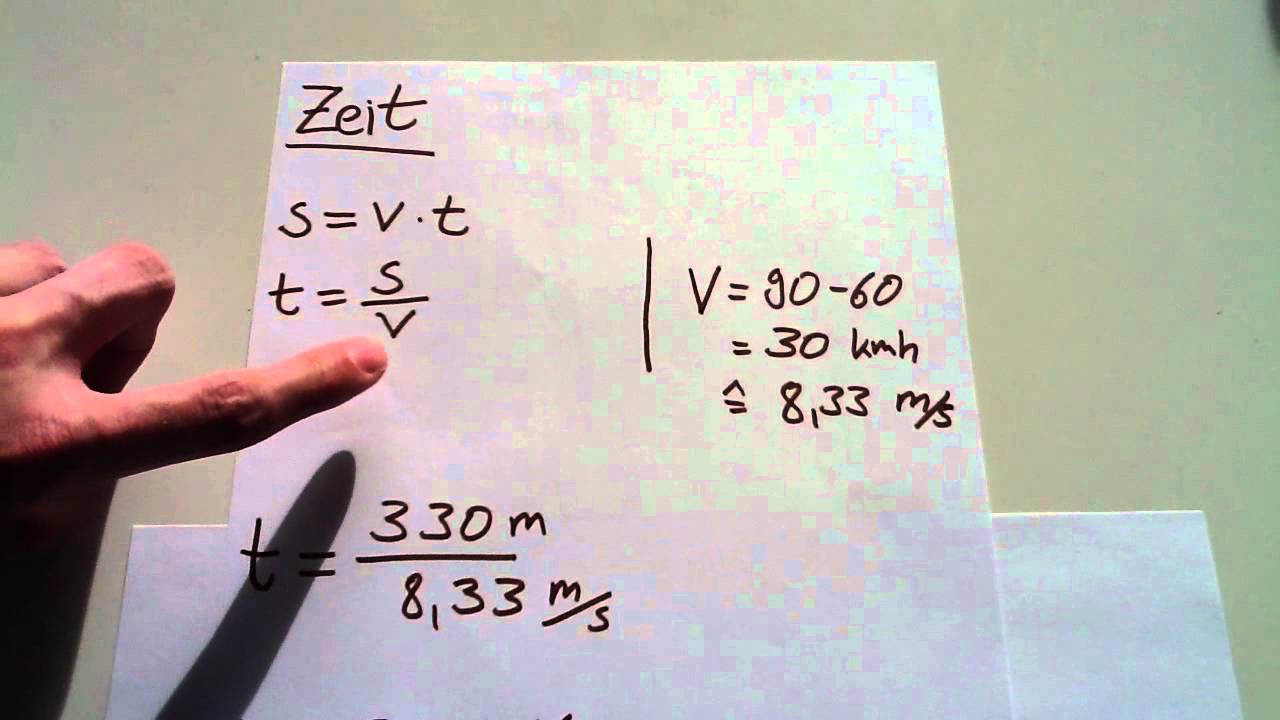 Zeit
s = v · t
t = s/v
V = 90 - 60
= 30 kmh
≙ 8,33 m/s
t = 330 m / 8,33 m/s